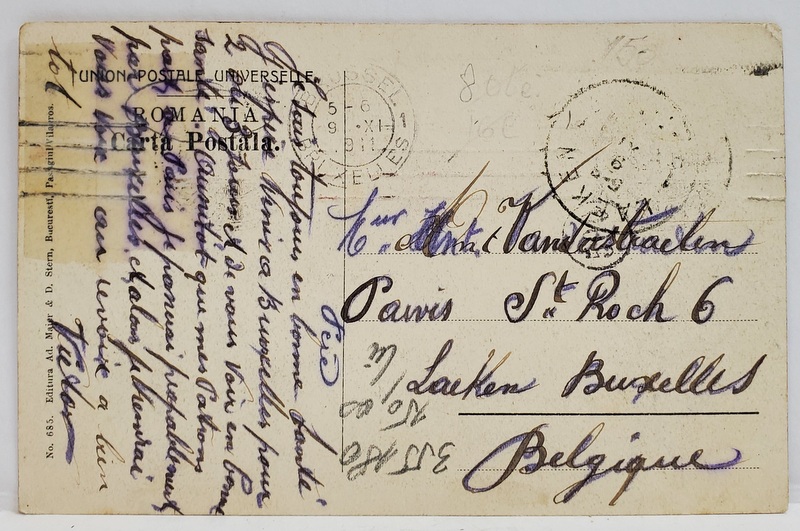 UNION POSTALE UNIVERSELLE
ROMANIA
Carta Postala.
No. 685. Editura Ad. Maier & D. Stern, Bucuresti, Pasagiul Vilacros.
Je suis toujours en bonne santé
J'espère venir a Bruxelles pour
2 a 3 jours et de vous voir en bonne
santé. Aussitôt que mes Patrons
part a Paris je passerai probablement
par Bruxelles et alors je viendrai
vous voir au revoir a bien
tot Victor
BRUSSEL 1
5-6
9 XI
1911
BRUXELLES
LAEKEN
Mme Vanderstraeten
Parvis St Roch 6
Laeken Bruxelles
Belgique